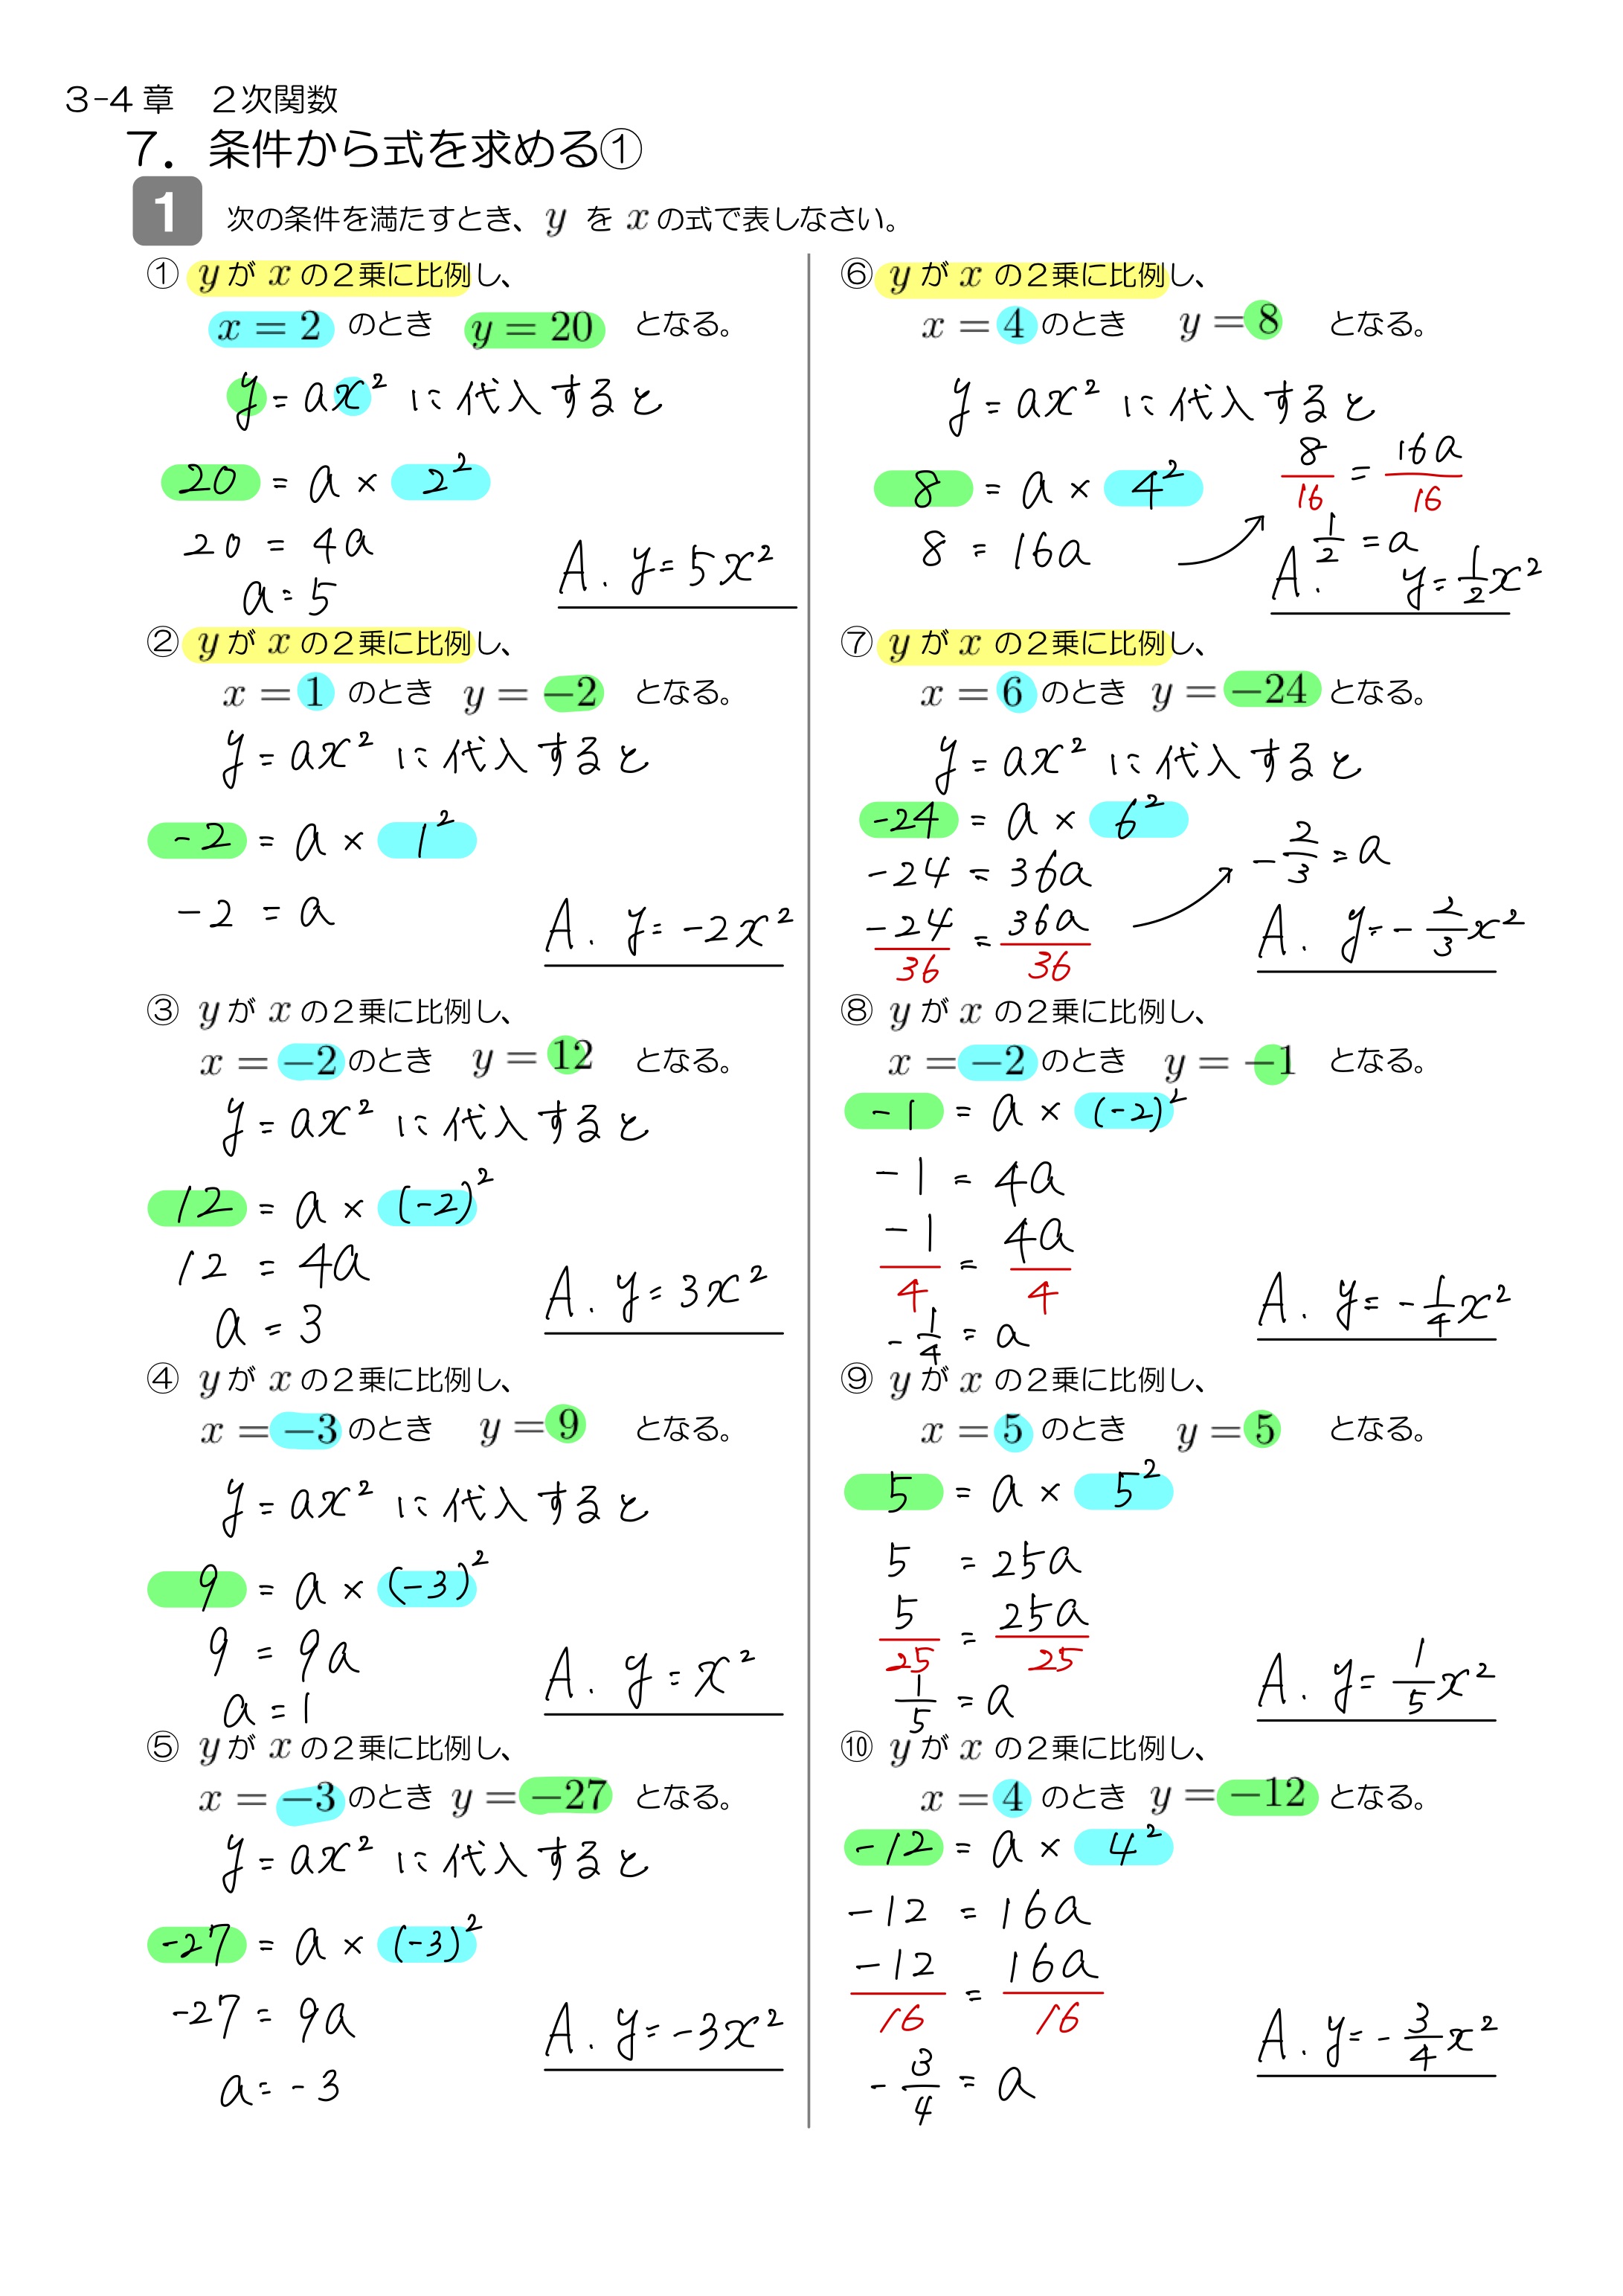 3-4章　2次関数
7. 条件から式を求める①
1 次の条件を満たすとき、y を x の式で表しなさい。
① y が x の2乗に比例し、
x = 2 のとき y = 20 となる。
y = ax² に代入すると
20 = a × 2²
20 = 4a
a = 5
A. y = 5x²
② y が x の2乗に比例し、
x = 1 のとき y = −2 となる。
y = ax² に代入すると
-2 = a × 1²
-2 = a
A. y = -2x²
③ y が x の2乗に比例し、
x = −2 のとき y = 12 となる。
y = ax² に代入すると
12 = a × (-2)²
12 = 4a
a = 3
A. y = 3x²
④ y が x の2乗に比例し、
x = −3 のとき y = 9 となる。
y = ax² に代入すると
9 = a × (-3)²
9 = 9a
a = 1
A. y = x²
⑤ y が x の2乗に比例し、
x = −3 のとき y = −27 となる。
y = ax² に代入すると
-27 = a × (-3)²
-27 = 9a
a = -3
A. y = -3x²
⑥ y が x の2乗に比例し、
x = 4 のとき y = 8 となる。
y = ax² に代入すると
8 = a × 4²
8 = 16a
8/16 = 16a/16
1/2 = a
A. y = 1/2 x²
⑦ y が x の2乗に比例し、
x = 6 のとき y = −24 となる。
y = ax² に代入すると
-24 = a × 6²
-24 = 36a
-24/36 = 36a/36
-2/3 = a
A. y = -2/3 x²
⑧ y が x の2乗に比例し、
x = −2 のとき y = −1 となる。
-1 = a × (-2)²
-1 = 4a
-1/4 = 4a/4
-1/4 = a
A. y = -1/4 x²
⑨ y が x の2乗に比例し、
x = 5 のとき y = 5 となる。
5 = a × 5²
5 = 25a
5/25 = 25a/25
1/5 = a
A. y = 1/5 x²
⑩ y が x の2乗に比例し、
x = 4 のとき y = −12 となる。
-12 = a × 4²
-12 = 16a
-12/16 = 16a/16
-3/4 = a
A. y = -3/4 x²